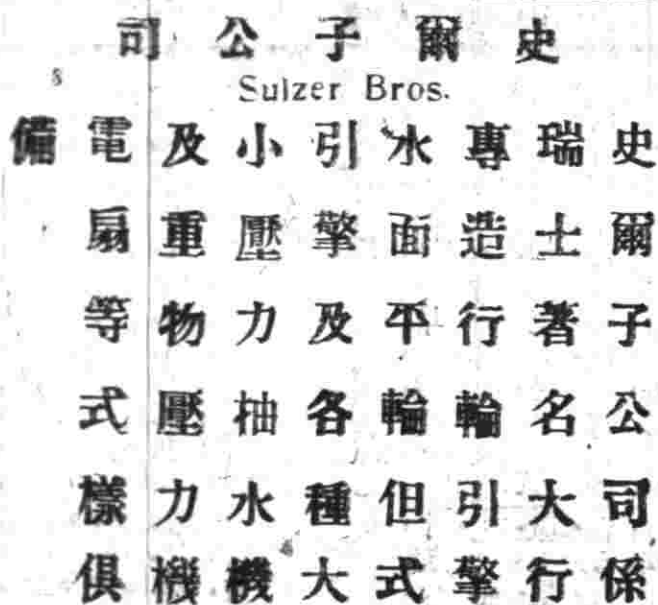 史爾子公司
Sulzer Bros.
史爾子公司係
瑞士著名大行
專造行輪引擎
水面平輪但式
引擎及各種大
小壓力柚水機
及重物壓力機
電扇等式樣俱
備